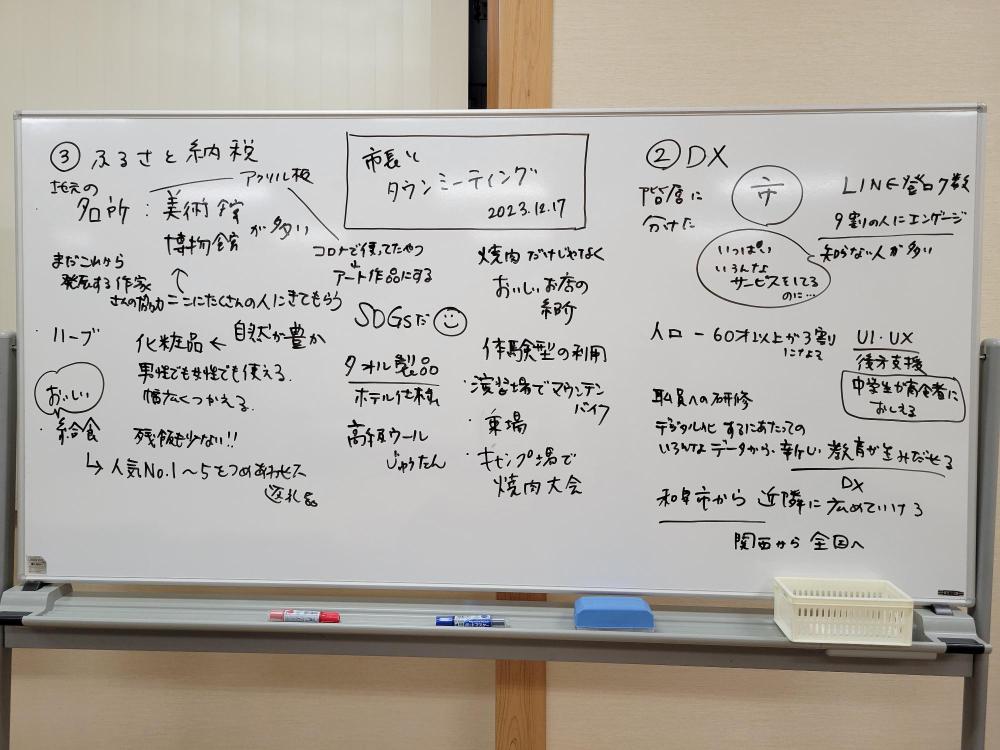 市長と
タウンミーティング
2023.12.17
③ ふるさと納税
アクリル板
地元の
・名所：美術館
博物館
が多い
コロナで使ってたやつ
アート作品にする
まだこれから
発展する作家
さんの協力
ここにたくさんの人にきてもらう
SDGsだ
・ハーブ
化粧品 ← 自然が豊か
男性でも女性でも使える。
幅広くつかえる。
おいしい
・給食
残飯も少ない!!
↳ 人気No.1〜5をつめあわせ
返礼品
タオル製品
ホテル仕様
高級ウール
じゅうたん
焼肉だけじゃなく
おいしいお店の
紹介
体験型の利用
・演習場でマウンテン
バイク
・乗場
・キャンプ場で
焼肉大会
② DX
階層に
分けた
市
LINE登ロク数
9割の人にエンゲージ
知らない人が多い
いっぱい
いろんな
サービスをしてる
のに…
人口 − 60才以上が3割
になる
UI・UX
後方支援
中学生が高令者に
おしえる
職員への研修
デジタル化するにあたっての
いろんなデータから、新しい教育が生みだせる
DX
和泉市から近隣に広めていける
関西から全国へ